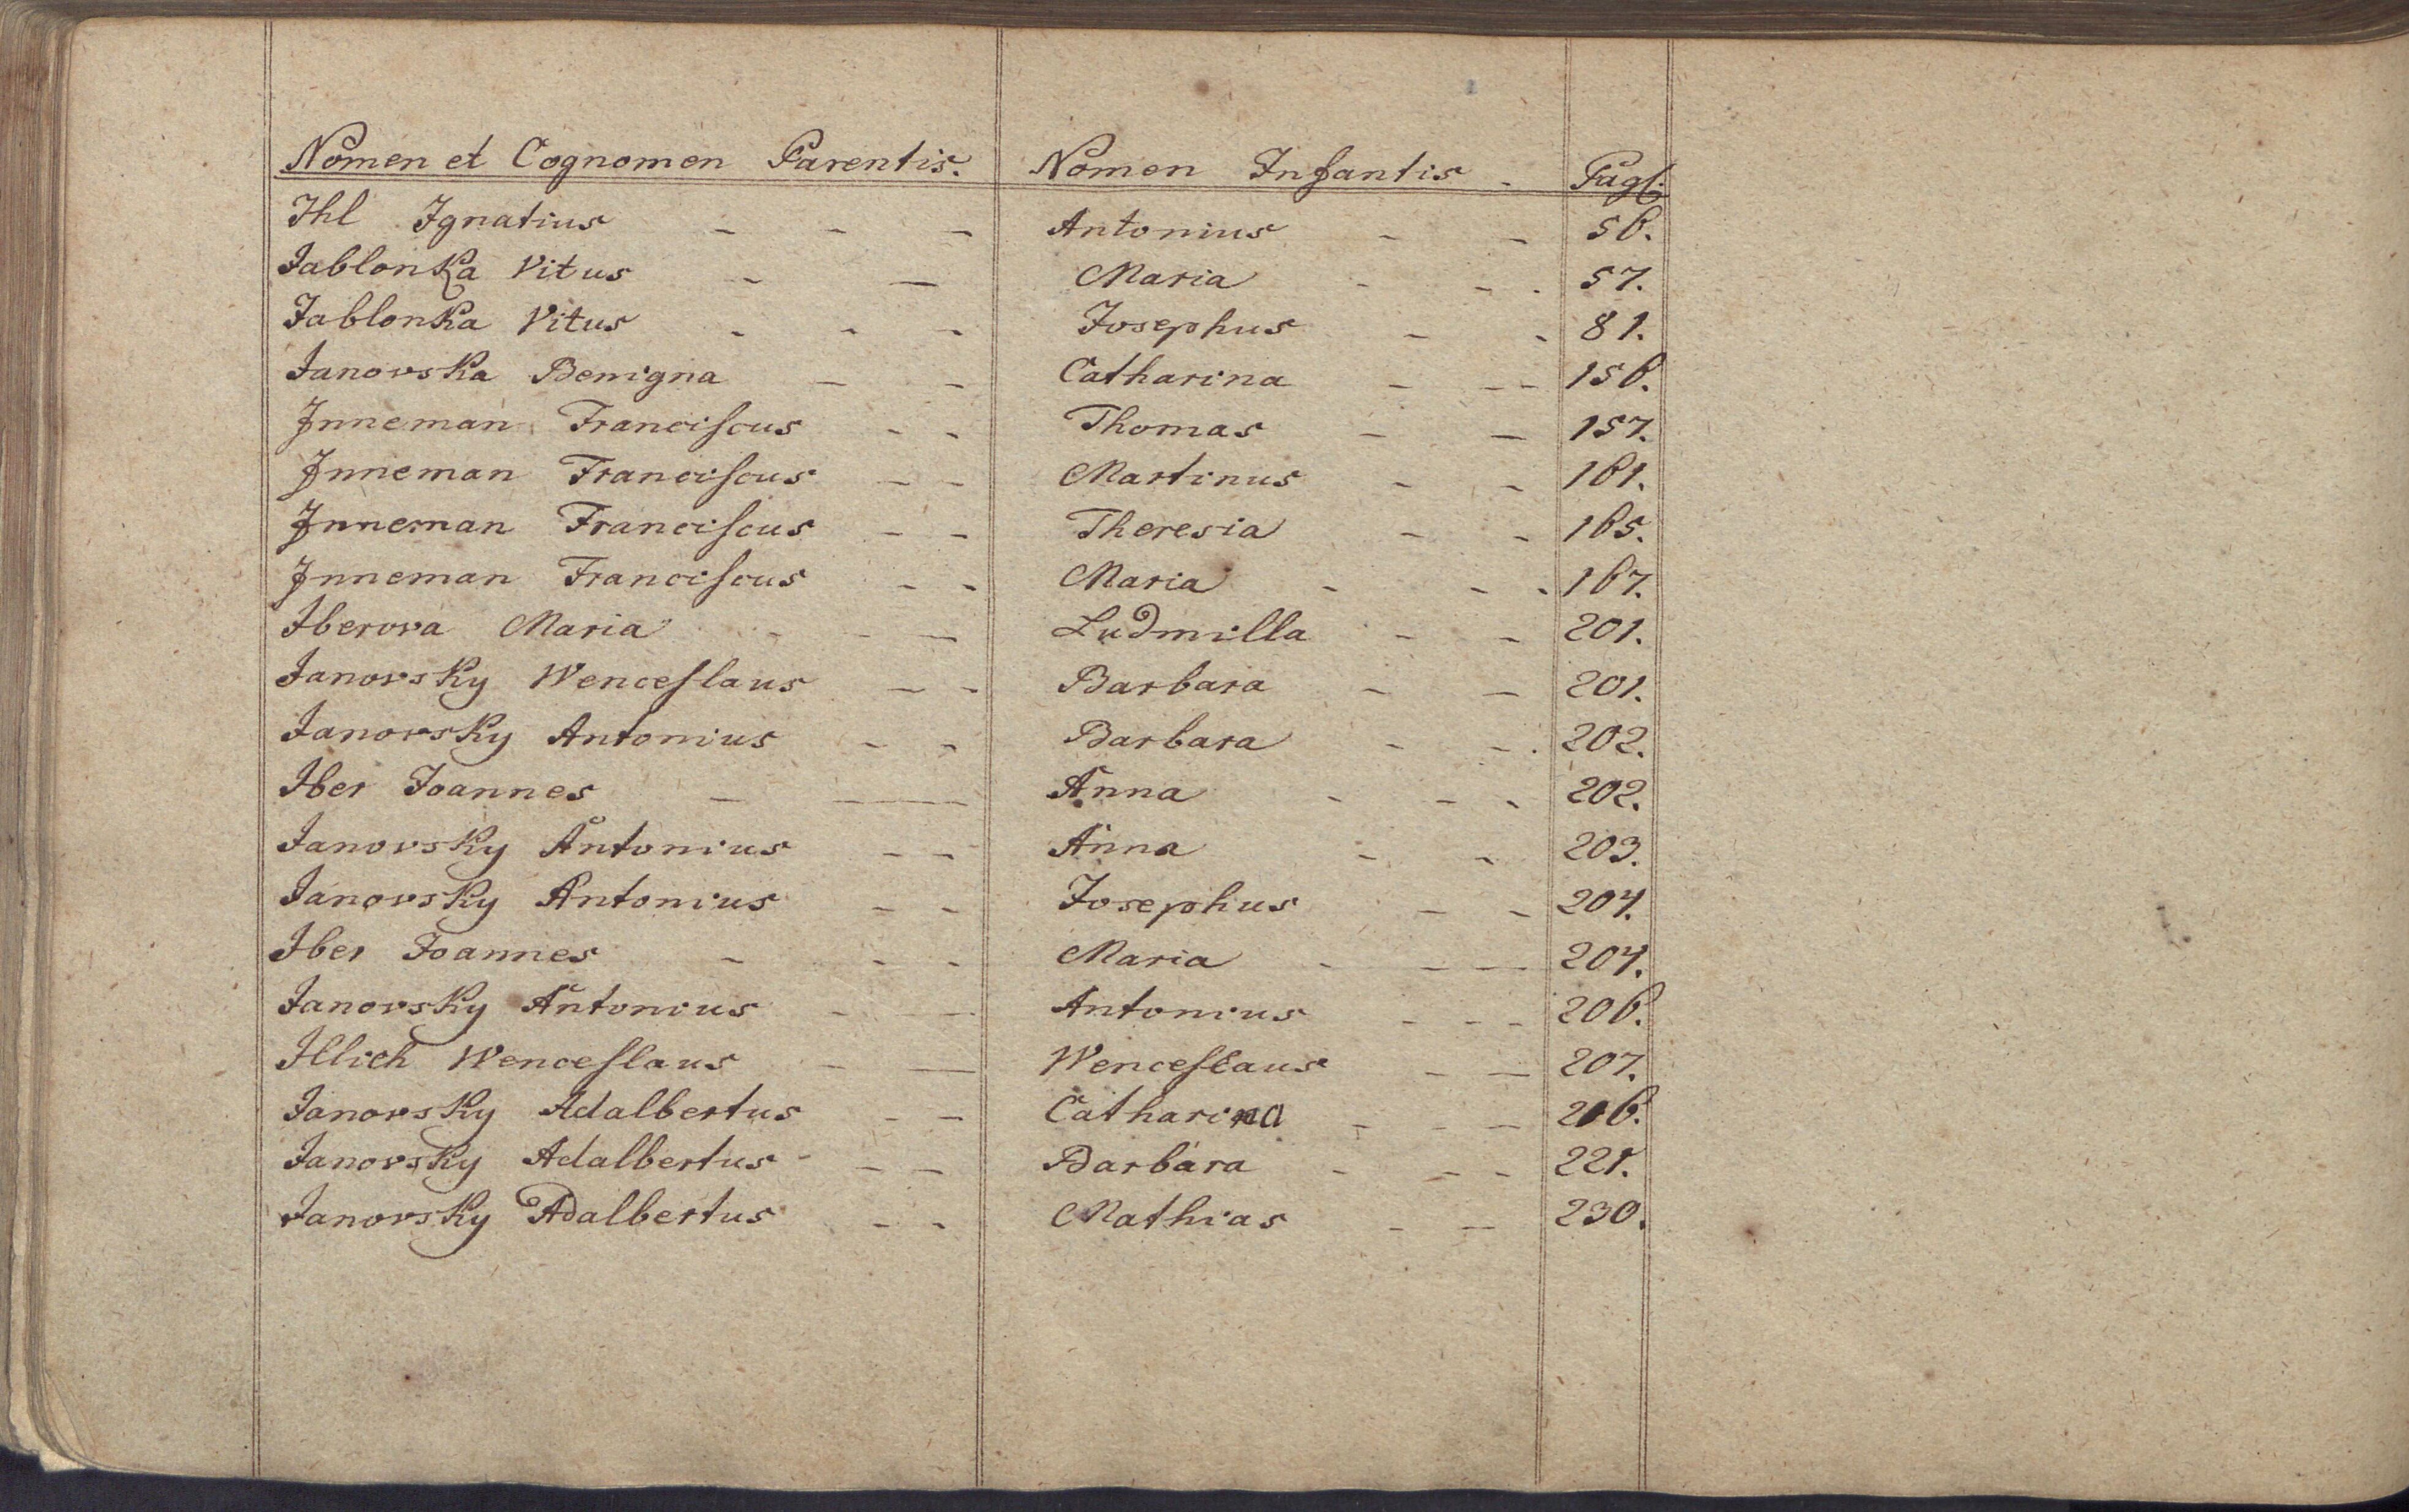 Nomen et Cognomen Parentis. Nomen Infantis - Pag:
Ihl Ignatius - - - Antonius - - 56.
Jablonka Vitus - - Maria - - - 57.
Jablonka Vitus - - - Josephus - - 81.
Janovska Benigna - - Catharina - - - 156.
Inneman Franciscus - - Thomas - - 157.
Inneman Franciscus - - Martinus - - 161.
Inneman Franciscus - - Theresia - - 165.
Inneman Franciscus - - Maria - - - 167.
Iberova Maria - - - Ludmilla - - 201.
Janovsky Wenceslaus - - Barbara - - 201.
Janovsky Antonius - - Barbara - - . 202.
Iber Joannes - - Anna - - - 202.
Janovsky Antonius - - Anna - - 203.
Janovsky Antonius - - Josephus - - 204.
Iber Joannes - - - Maria - - - 204.
Janovsky Antonius - - Antonius - - - 206.
Illich Wenceslaus - - Wenceslaus - - 207.
Janovsky Adalbertus - - Catharina - - - 216.
Janovsky Adalbertus - - Barbara - - - 221.
Janovsky Adalbertus - - Mathias - - 230.